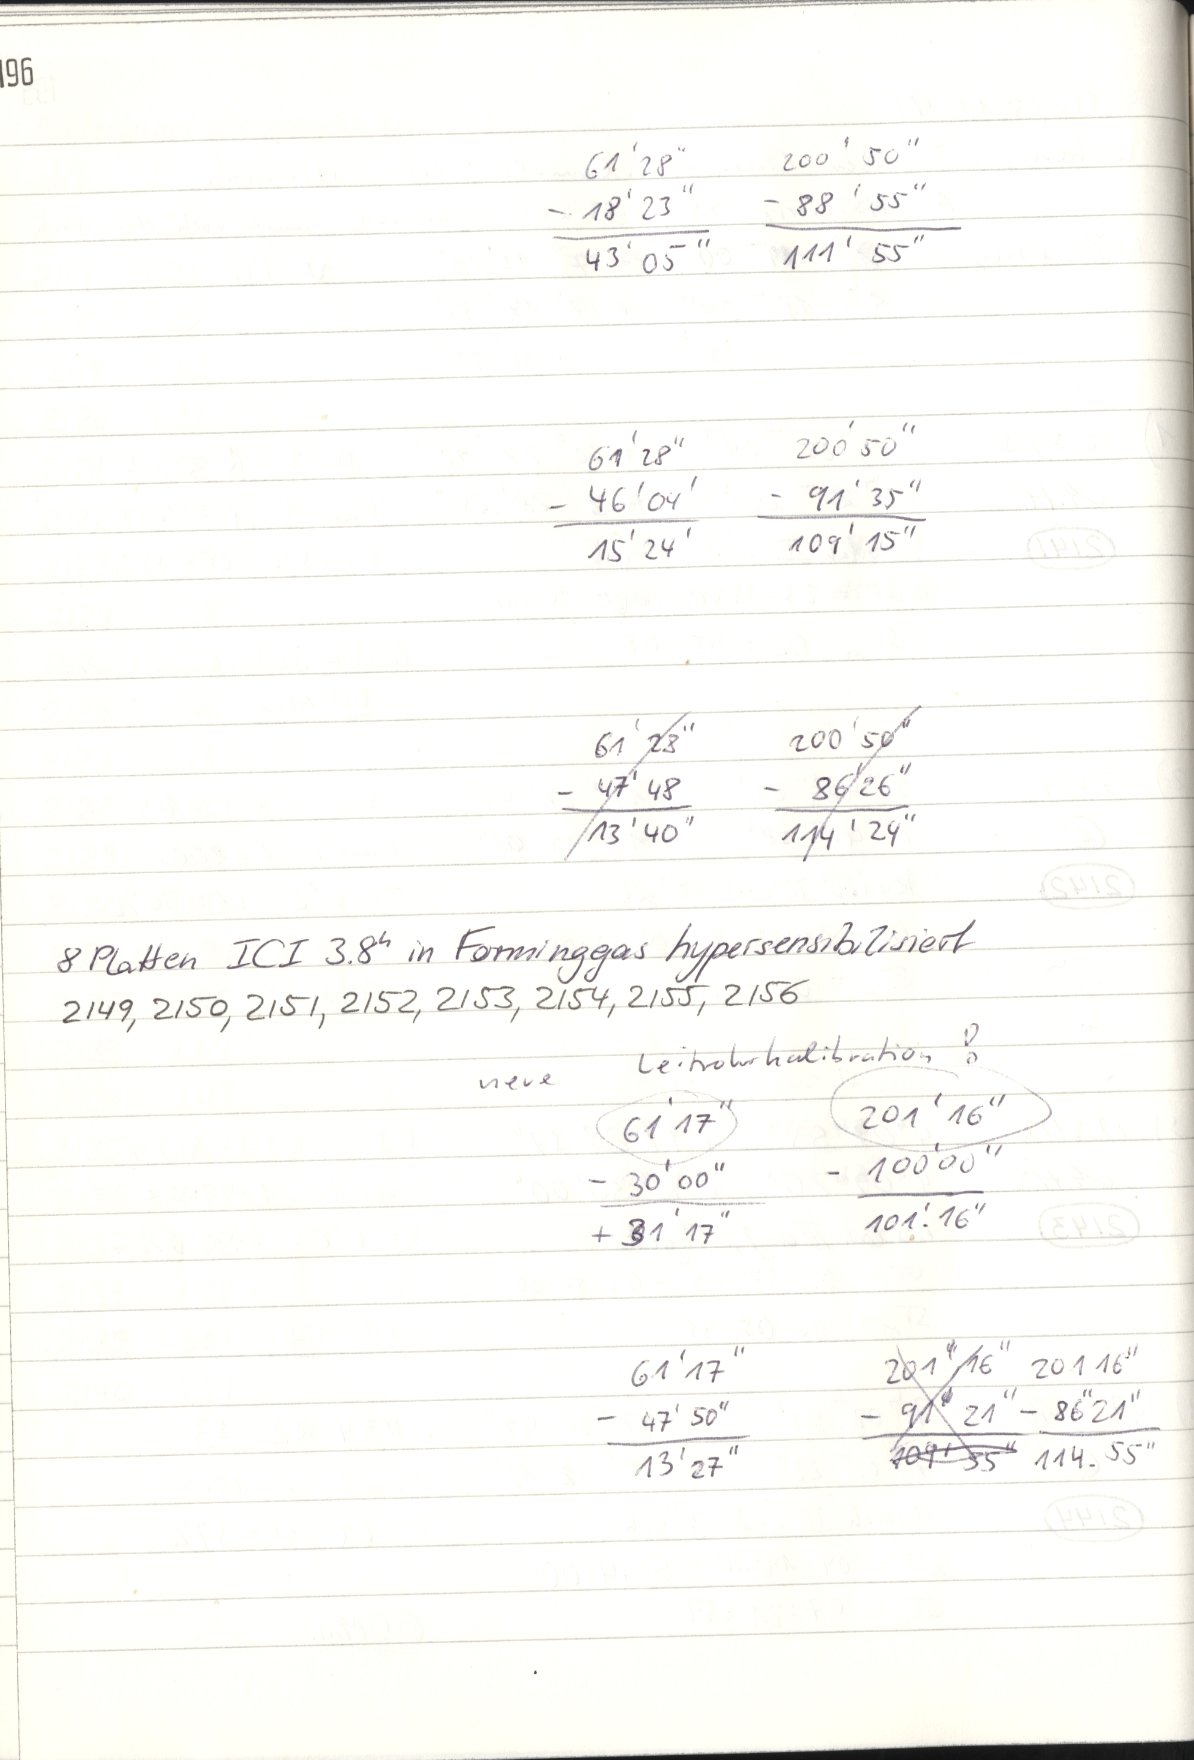 196
61' 28" 200' 50"
- 18' 23" - 88' 55"
43' 05" 111' 55"
61' 28" 200' 50"
- 46' 04' - 91' 35"
15' 24' 109' 15"
61' 28" 200' 50"
- 47' 48 - 86' 26"
13' 40" 114' 24"
8 Platten ICI 3.8h in Forminggas hypersensibilisiert
2149, 2150, 2151, 2152, 2153, 2154, 2155, 2156
neue Leitrohrkalibration !
61' 17" 201' 16"
- 30' 00" - 100' 00"
+ 31' 17" 101'. 16"
61' 17" 201" 16" 201 16"
- 47' 50" - 91" 21" - 86" 21"
13' 27" 109' 55" 114. 55"